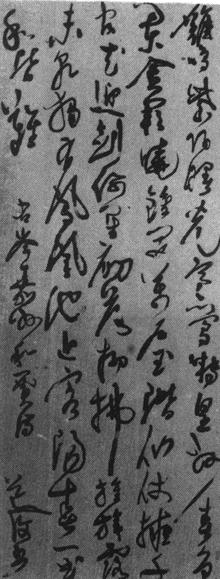 雞鳴紫陌曙光寒鶯囀皇州春色
闌金闕曉鐘開萬戶玉階仙仗擁千
官花迎劍佩星初落柳拂旌旗露
未乾獨有鳳凰池上客陽春一曲
和皆難